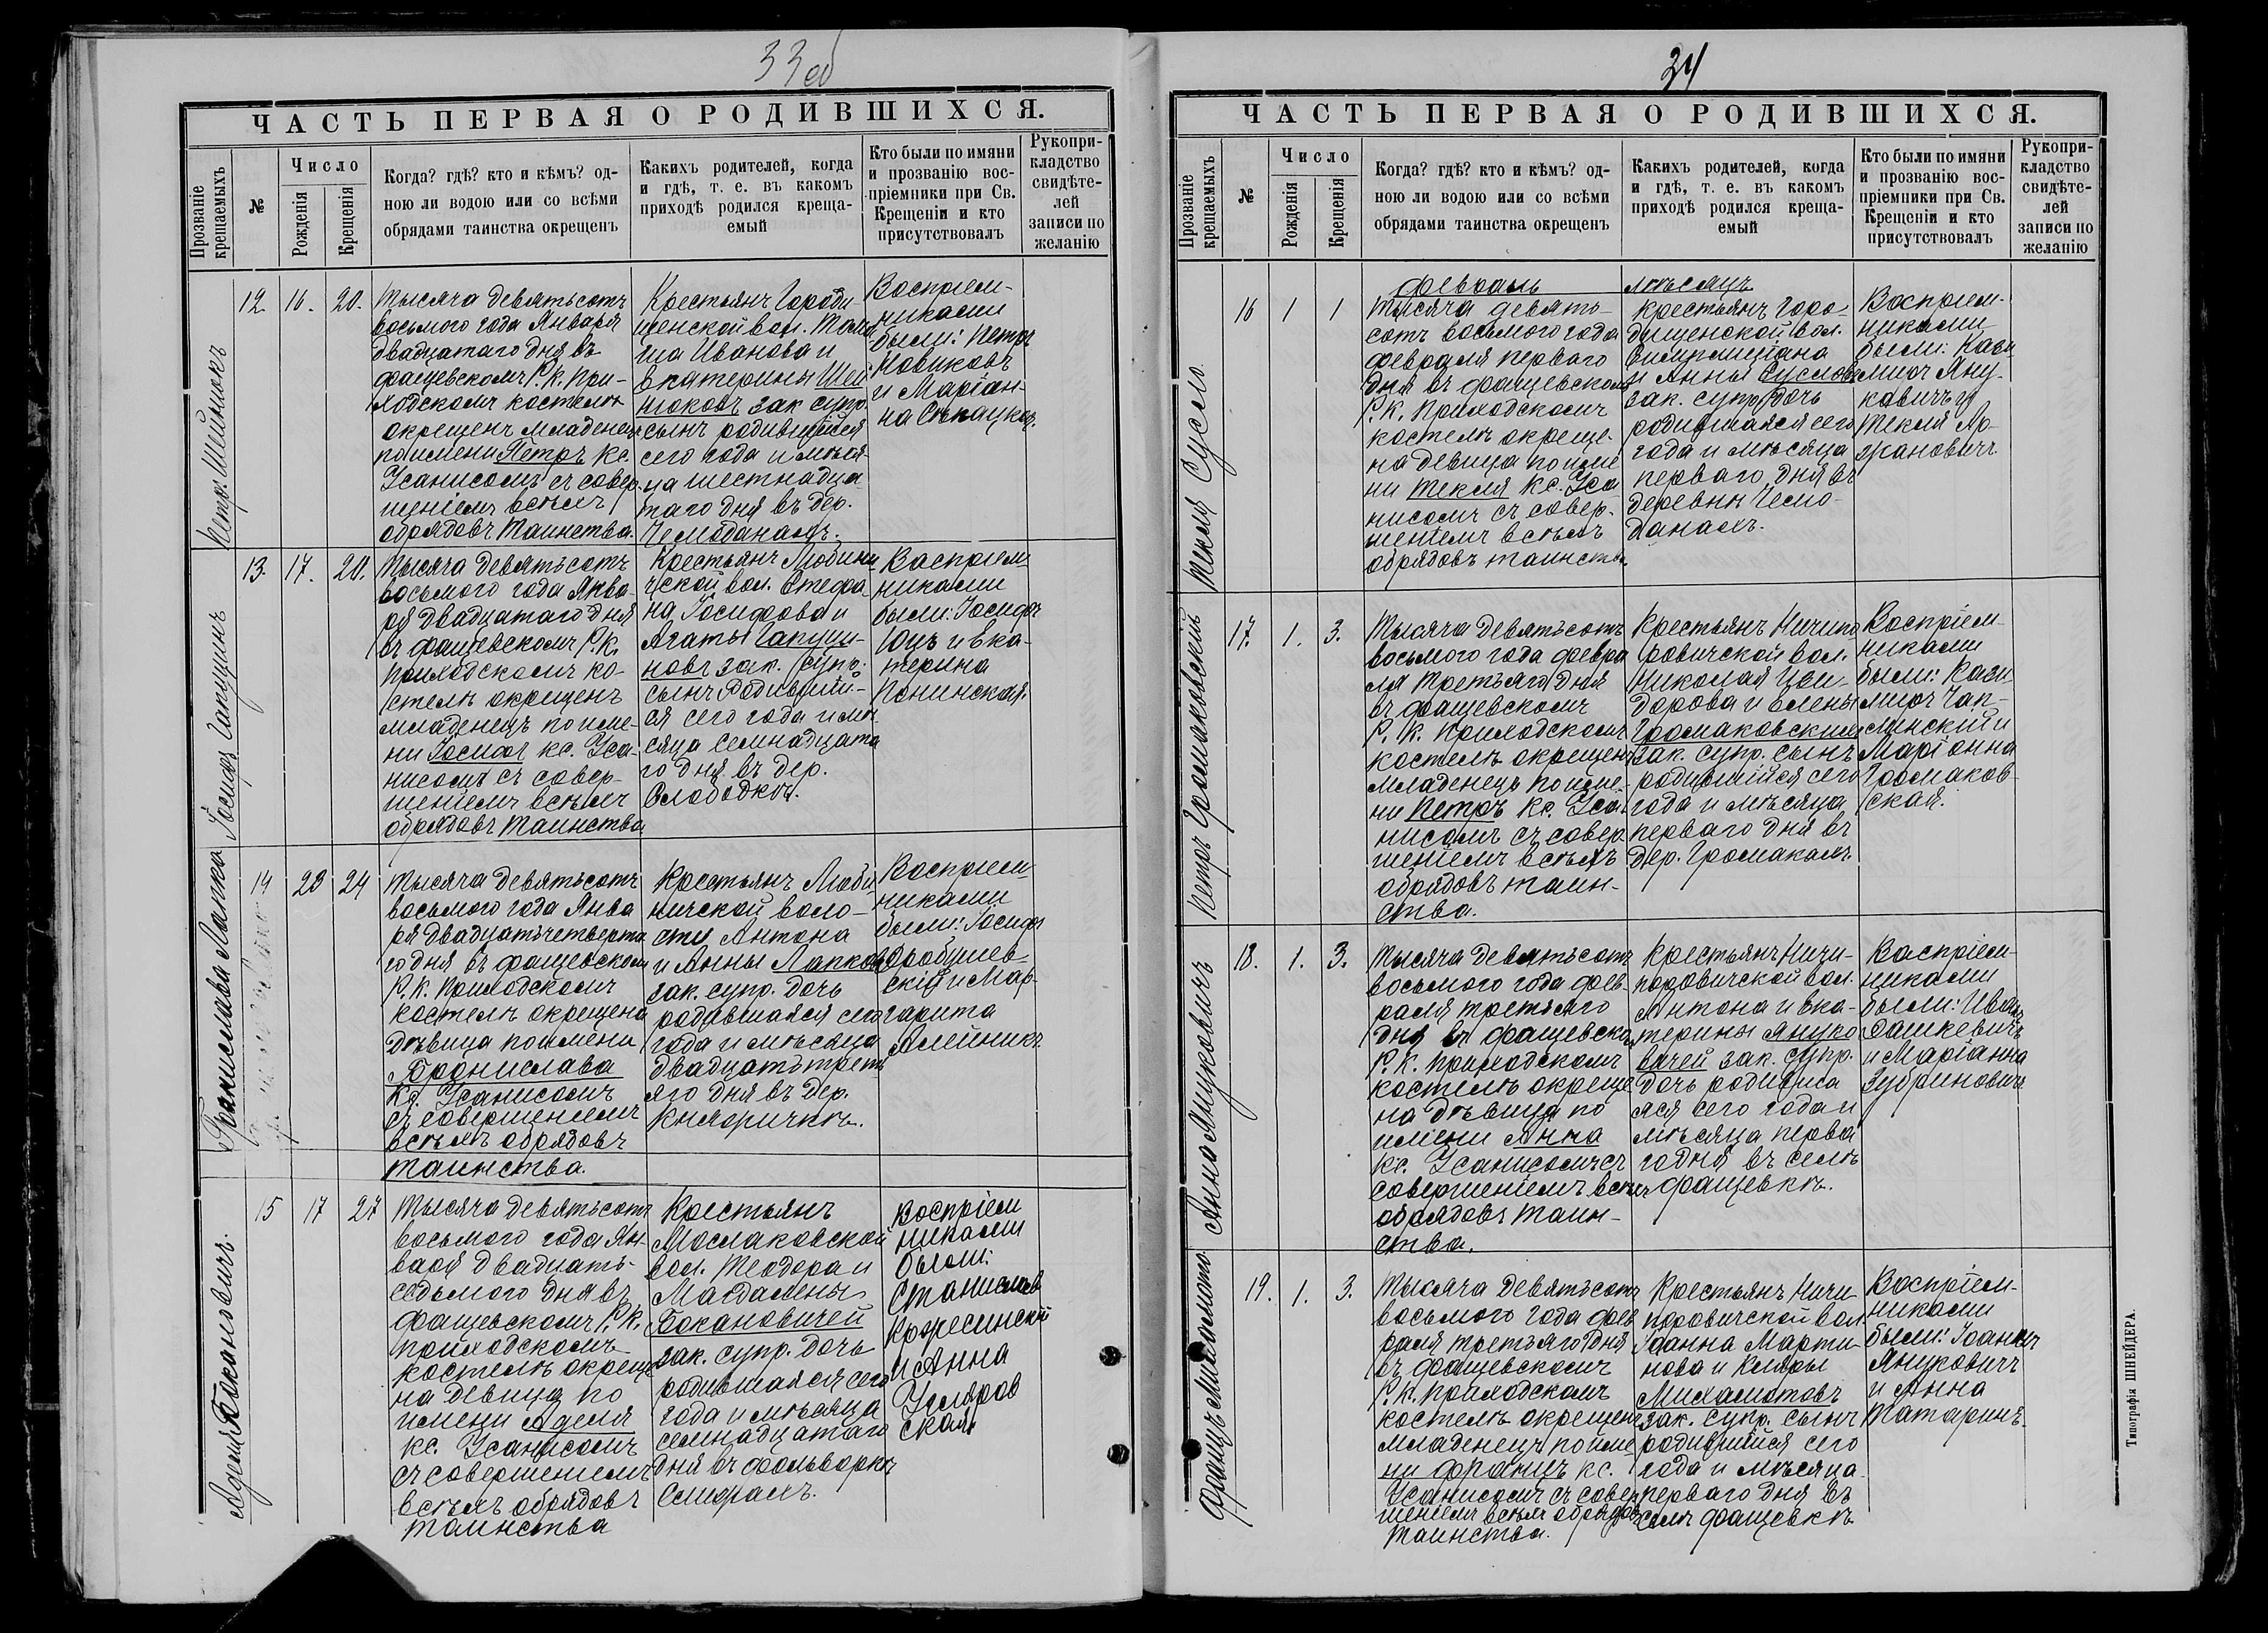 33об
ЧАСТЬ ПЕРВАЯ О РОДИВШИХСЯ.
Прозваніе крещаемыхъ
№
Число
Рожденія
Крещенія
Когда? гдѣ? кто и кѣмъ? од-
ною ли водою или со всѣми
обрядами таинства окрещенъ
Каких родителей, когда
и гдѣ, т. е. въ какомъ
приходѣ родился креща-
емый
Кто были по имяни
и прозванію вос-
пріемники при Св.
Крещеніи и кто
присутствовалъ
Рукопри-
кладство
свидѣте-
лей
записи по
желанію
Петръ Шейнюкъ
12. 16. 20.
Тысяча девятьсотъ
восьмого года Января
двадцатаго дня въ
фащевскомъ Р. К. При-
ходскомъ костелѣ
окрещенъ младенецъ
по имени Петръ кс.
Усанисомъ съ совер-
шеніемъ всѣхъ
обрядовъ таинства.
Крестьянъ Городи-
щенской вол.
Иванова и
Екатерины Шей-
нюковъ зак. супр.
сынъ родившійся
сего года и мѣся-
ца шестнадца-
таго дня въ дер.
Чемоданахъ.
Воспріем-
никами
были: Петръ
Новиковъ
и Маріан-
на
Іосифъ Гапушинъ
13. 17. 20.
Тысяча девятьсотъ
восьмого года Янва-
ря двадцатаго дня
въ фащевскомъ Р. К.
приходскомъ ко-
стелѣ окрещенъ
младенецъ по име-
ни Іосифъ кс. Уса-
нисомъ съ совер-
шеніемъ всѣхъ
обрядовъ таинства
Крестьянъ Любини-
чской вол. Стефа-
на Іосифова и
Агаты
зак. супр.
сынъ родившій-
ся сего года и мѣ-
сяца семнадцата
го дня въ дер.
Слободкѣ.
Воспріем-
никами
были: Іосифъ
Юцъ и Ека-
терина
Понинская.
Бронислава Лапко
14 23 24
Тысяча девятьсотъ
восьмого года Янва
ря двадцать четверта
го дня въ фащевскомъ
Р. К. Приходскомъ
костелѣ окрещена
дѣвица по имени
Бронислава
кс. Усанисомъ
съ совершеніемъ
всѣхъ обрядовъ
таинства.
Крестьянъ Люби
ничской воло-
сти Антона
и Анны Лапковъ
зак. супр. дочь
родившаяся сего
года и мѣсяца
двадцать треть
яго дня въ дер.
Княжичкѣ.
Воспріем-
никами
были: Іосифъ
Дробушев-
скій и Мар-
гарита
Алейникъ
Аделя Боконовичъ.
15 17 27
Тысяча девятьсотъ
восьмого года Ян-
варя двадцать-
седьмого дня въ
фащевскомъ Р. К.
приходскомъ
костелѣ окреще
на девица по
имени Аделя
кс. Усанисомъ
съ совершеніемъ
всѣхъ обрядовъ
таинства
Крестьянъ
Мослаковской
вол. Теодора и
Магдалены
Бокановичей
зак. супр. дочь
родившаяся сего
года и мѣсяца
семнадцатаго
дня въ фольваркѣ
Воспріем
никами
были:
Станиславъ
и Анна
34
ЧАСТЬ ПЕРВАЯ О РОДИВШИХСЯ.
Прозваніе крещаемыхъ
№
Число
Рожденія
Крещенія
Когда? гдѣ? кто и кѣмъ? од-
ною ли водою или со всѣми
обрядами таинства окрещенъ
Какихъ родителей, когда
и гдѣ, т. е. въ какомъ
приходѣ родился креща-
емый
Кто были по имяни
и прозванію вос-
пріемники при Св.
Крещеніи и кто
присутствовалъ
Рукопри-
кладство
свидѣте-
лей
записи по
желанію
Февраль мѣсяцъ
Текля Сусло
16 1 1
Тысяча девять-
сотъ восьмого года
февраля перваго
дня въ фащевскомъ
Р. К. Приходскомъ
костелѣ окреще-
на девица по име
ни Текля кс. Уса
нисомъ съ совер-
шеніемъ всѣхъ
обрядовъ таинства.
Крестьянъ Горо-
дищенской вол.
и Анны Сусловъ
зак. супр. дочь
родившаяся сего
года и мѣсяца
перваго дня въ
деревнѣ Чемо-
данахъ.
Воспріем-
никами
были: Кази
миръ Яну-
кавичъ и
Текля Ло-
жановичъ
Петръ Громаковскій
17. 1. 3.
Тысяча девятьсотъ
восьмого года февра
ля третьяго дня
въ фащевскомъ
Р. К. Приходскомъ
костелѣ окрещенъ
младенецъ по име-
ни Петръ кс. Уса-
нисомъ съ совер-
шеніемъ всѣхъ
обрядовъ таин-
ства.
Крестьянъ Ничипо
ровичской вол.
Николая Иси-
дорова и Елены
Громаковскихъ
зак. супр. сынъ
родившійся сего
года и мѣсяца
перваго дня въ
дер. Громакахъ
Воспріем-
никами
были: Кази
миръ Чап-
линскій и
Маріанна
Громаков-
ская.
Анна Януковичъ
18. 1. 3.
Тысяча девятьсотъ
восьмого года фев-
раля третьяго
дня въ фащевско
Р. К. приходскомъ
костелѣ окреще
на дѣвица по
имени Анна
кс. Усанисомъ съ
совершеніемъ всѣхъ
обрядовъ таин-
ства.
Крестьянъ Ничи-
поровичской вол.
Антона и Ека-
терины Януко
вичей зак. супр.
дочь родивша
яся сего года и
мѣсяца перва
го дня въ селѣ
фащевкѣ.
Воспріем-
никами
были: Иванъ
Дашкевичъ
и Маріанна
Зубриновичъ
Францъ
19. 1. 3.
Тысяча девятьсотъ
восьмого года фев
раля третьяго дня
въ фащевскомъ
Р. К. приходскомъ
костелѣ окрещенъ
младенецъ по име
ни Францъ кс.
Усанисомъ съ совер-
шеніемъ всѣхъ обрядовъ
таинства.
Крестьянъ Ничи-
поровичской вол.
Іоанна Марти-
нова и Кляры
Михамотовъ
зак. супр. сынъ
родившійся сего
года и мѣсяца
перваго дня въ
селѣ фащевкѣ
Воспріем-
никами
были: Іоаннъ
Януковичъ
и Анна
Татаринъ.
Типографія ШНЕЙДЕРА.